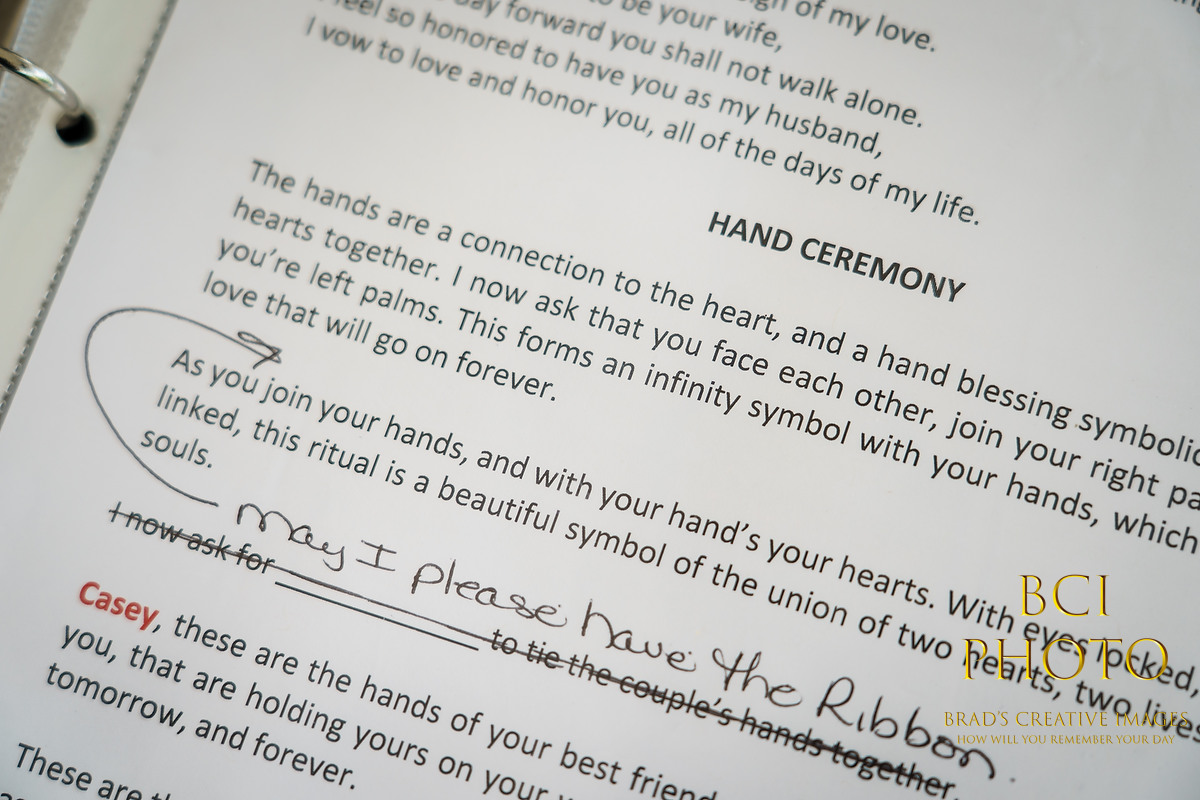 of my love.
to be your wife,
day forward you shall not walk alone.
feel so honored to have you as my husband,
I vow to love and honor you, all of the days of my life.
HAND CEREMONY
The hands are a connection to the heart, and a hand blessing
hearts together. I now ask that you face each other, join your right
you're left palms. This forms an infinity symbol with your hands, which
love that will go on forever.
As you join your hands, and with your hand's your hearts. With eyes locked,
linked, this ritual is a beautiful symbol of the union of two hearts, two lives
souls.
May I please have the Ribbon.
I now ask for ____________________ to tie the couple's hands together.
Casey, these are the hands of your best friend
you, that are holding yours on your
tomorrow, and forever.
These are
BCI
PHOTO
BRAD'S CREATIVE IMAGES
HOW WILL YOU REMEMBER YOUR DAY